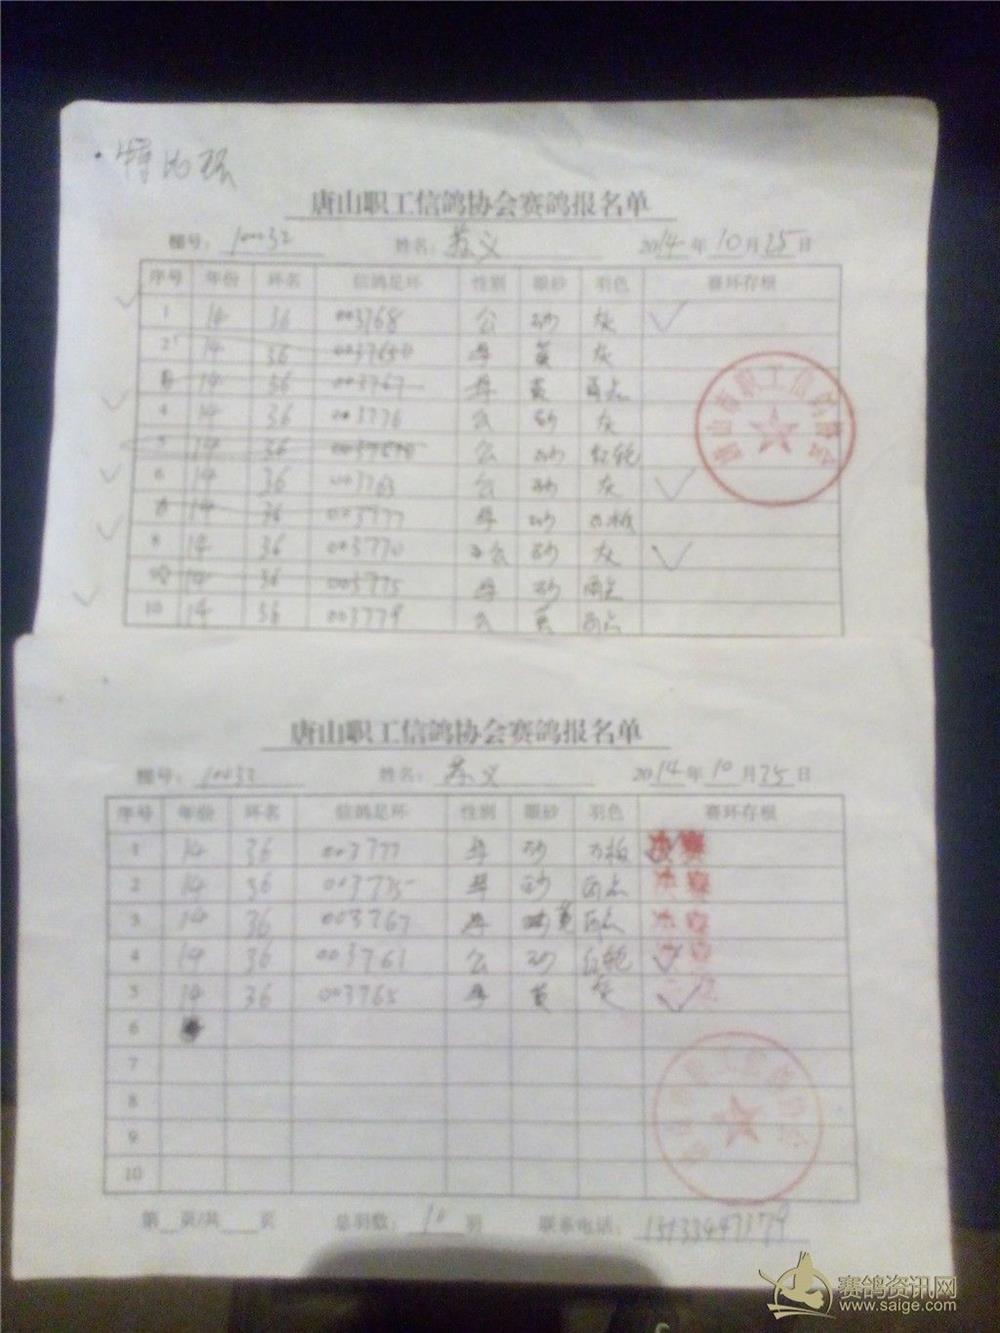 特比环
唐山职工信鸽协会赛鸽报名单
棚号: 10032 姓名: 苏义 2014年10月25日
序号 年份 环名 信鸽足环 性别 眼砂 羽色 赛环存根
1 14 36 003768 公 砂 灰 ✓
2 14 36 母 黄 灰
14 36 003767 母 黄 雨点
4 14 36 003776 公 砂 灰
5 14 36 公 砂 红轮
6 14 36 003763 公 砂 灰 ✓
14 36 003777 母 砂
8 14 36 003770 公 砂 灰 ✓
14 36 003775 母 砂 雨点
10 14 36 003779 公 黄 雨点
唐山市职工信鸽协会
唐山职工信鸽协会赛鸽报名单
棚号: 10032 姓名: 苏义 2014年10月25日
序号 年份 环名 信鸽足环 性别 眼砂 羽色 赛环存根
1 14 36 003777 母 砂 决赛
2 14 36 003775 母 砂 雨点 决赛
3 14 36 003767 母 黄 雨点 决赛
4 14 36 003761 公 砂 红轮 ✓
5 14 36 003765 母 黄 灰 ✓
6
7
8
9
10
第__页/共__页 总羽数: 10 羽 联系电话:
赛鸽资讯网
www.saige.com